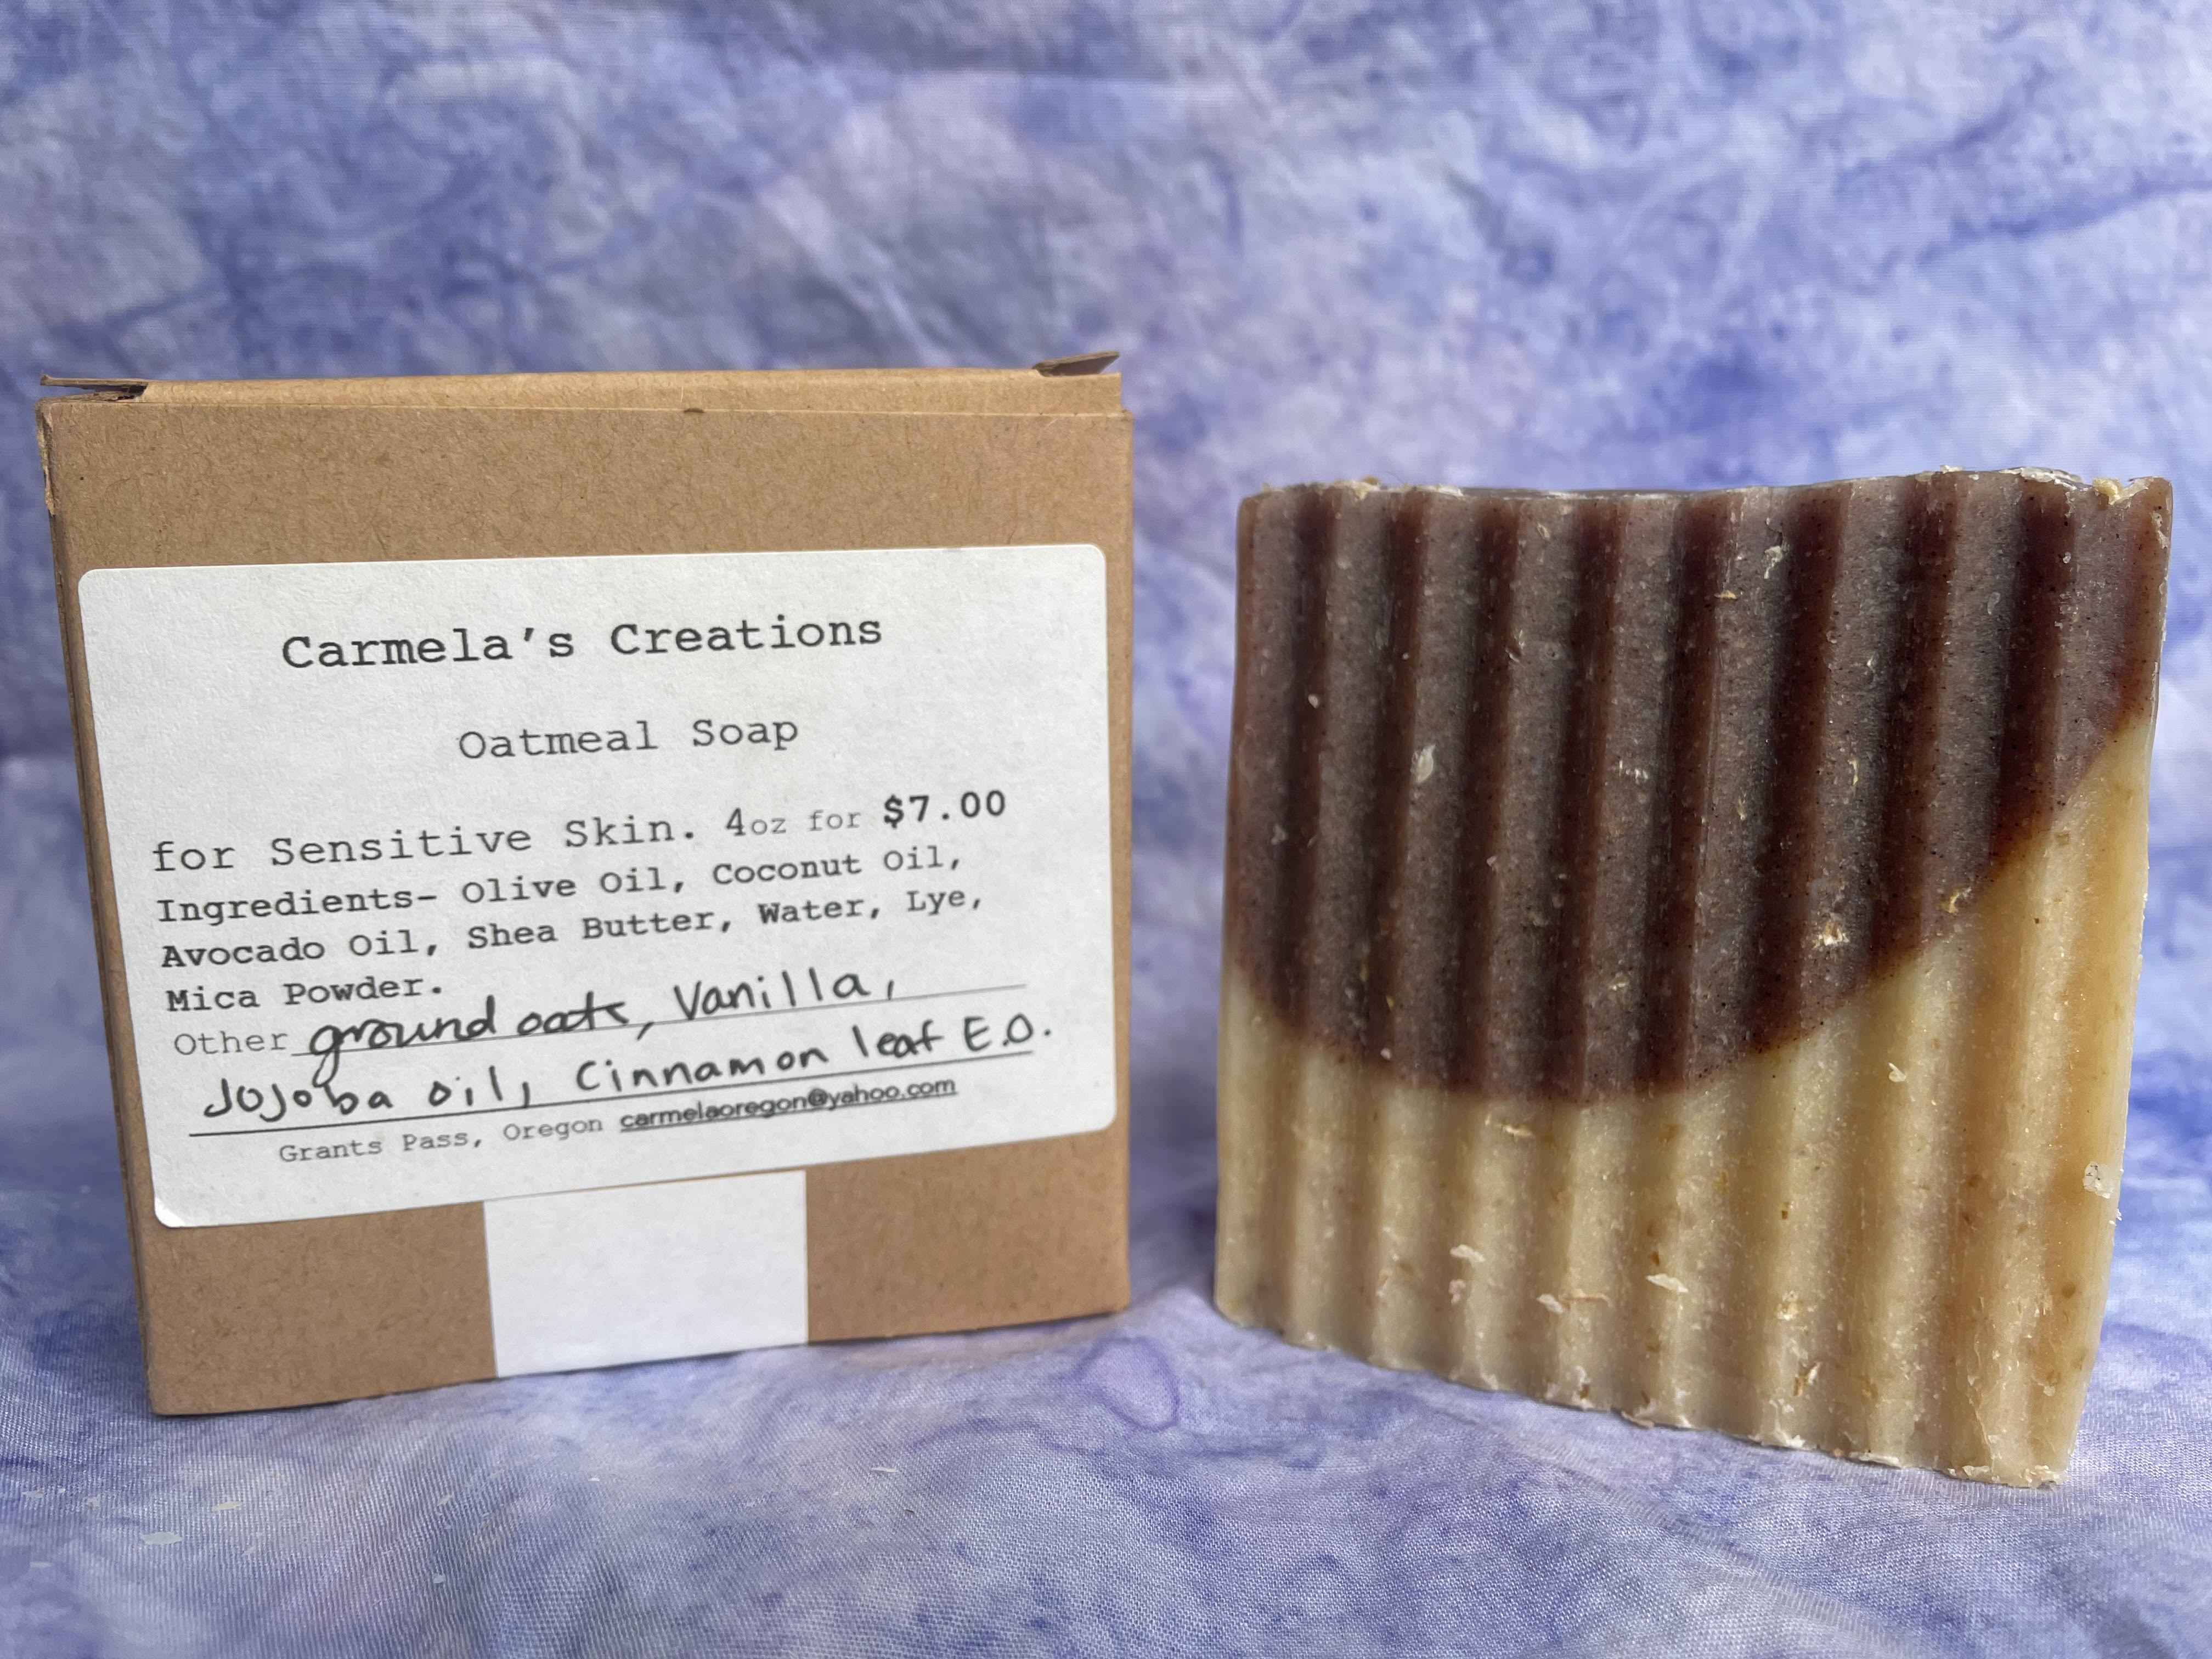 Carmela's Creations
Oatmeal Soap
for Sensitive Skin. 4oz for $7.00
Ingredients- Olive Oil, Coconut Oil,
Avocado Oil, Shea Butter, Water, Lye,
Mica Powder.
Other ground oats, Vanilla,
Jojoba oil, Cinnamon leaf E.O.
Grants Pass, Oregon carmelaoregon@yahoo.com